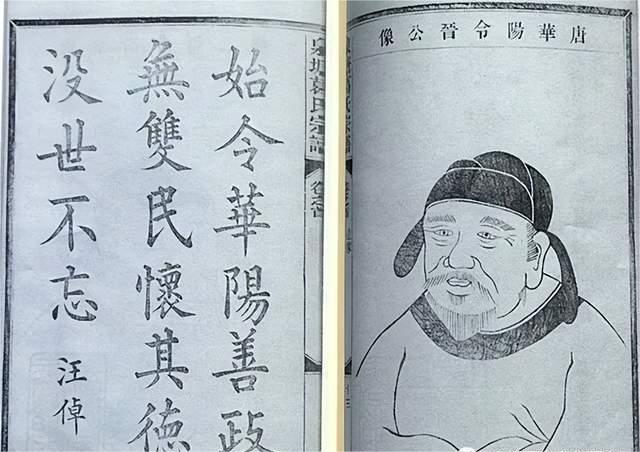 唐華陽令晉公像
始令華陽善政
無雙民懷其德
没世不忘
汪倬